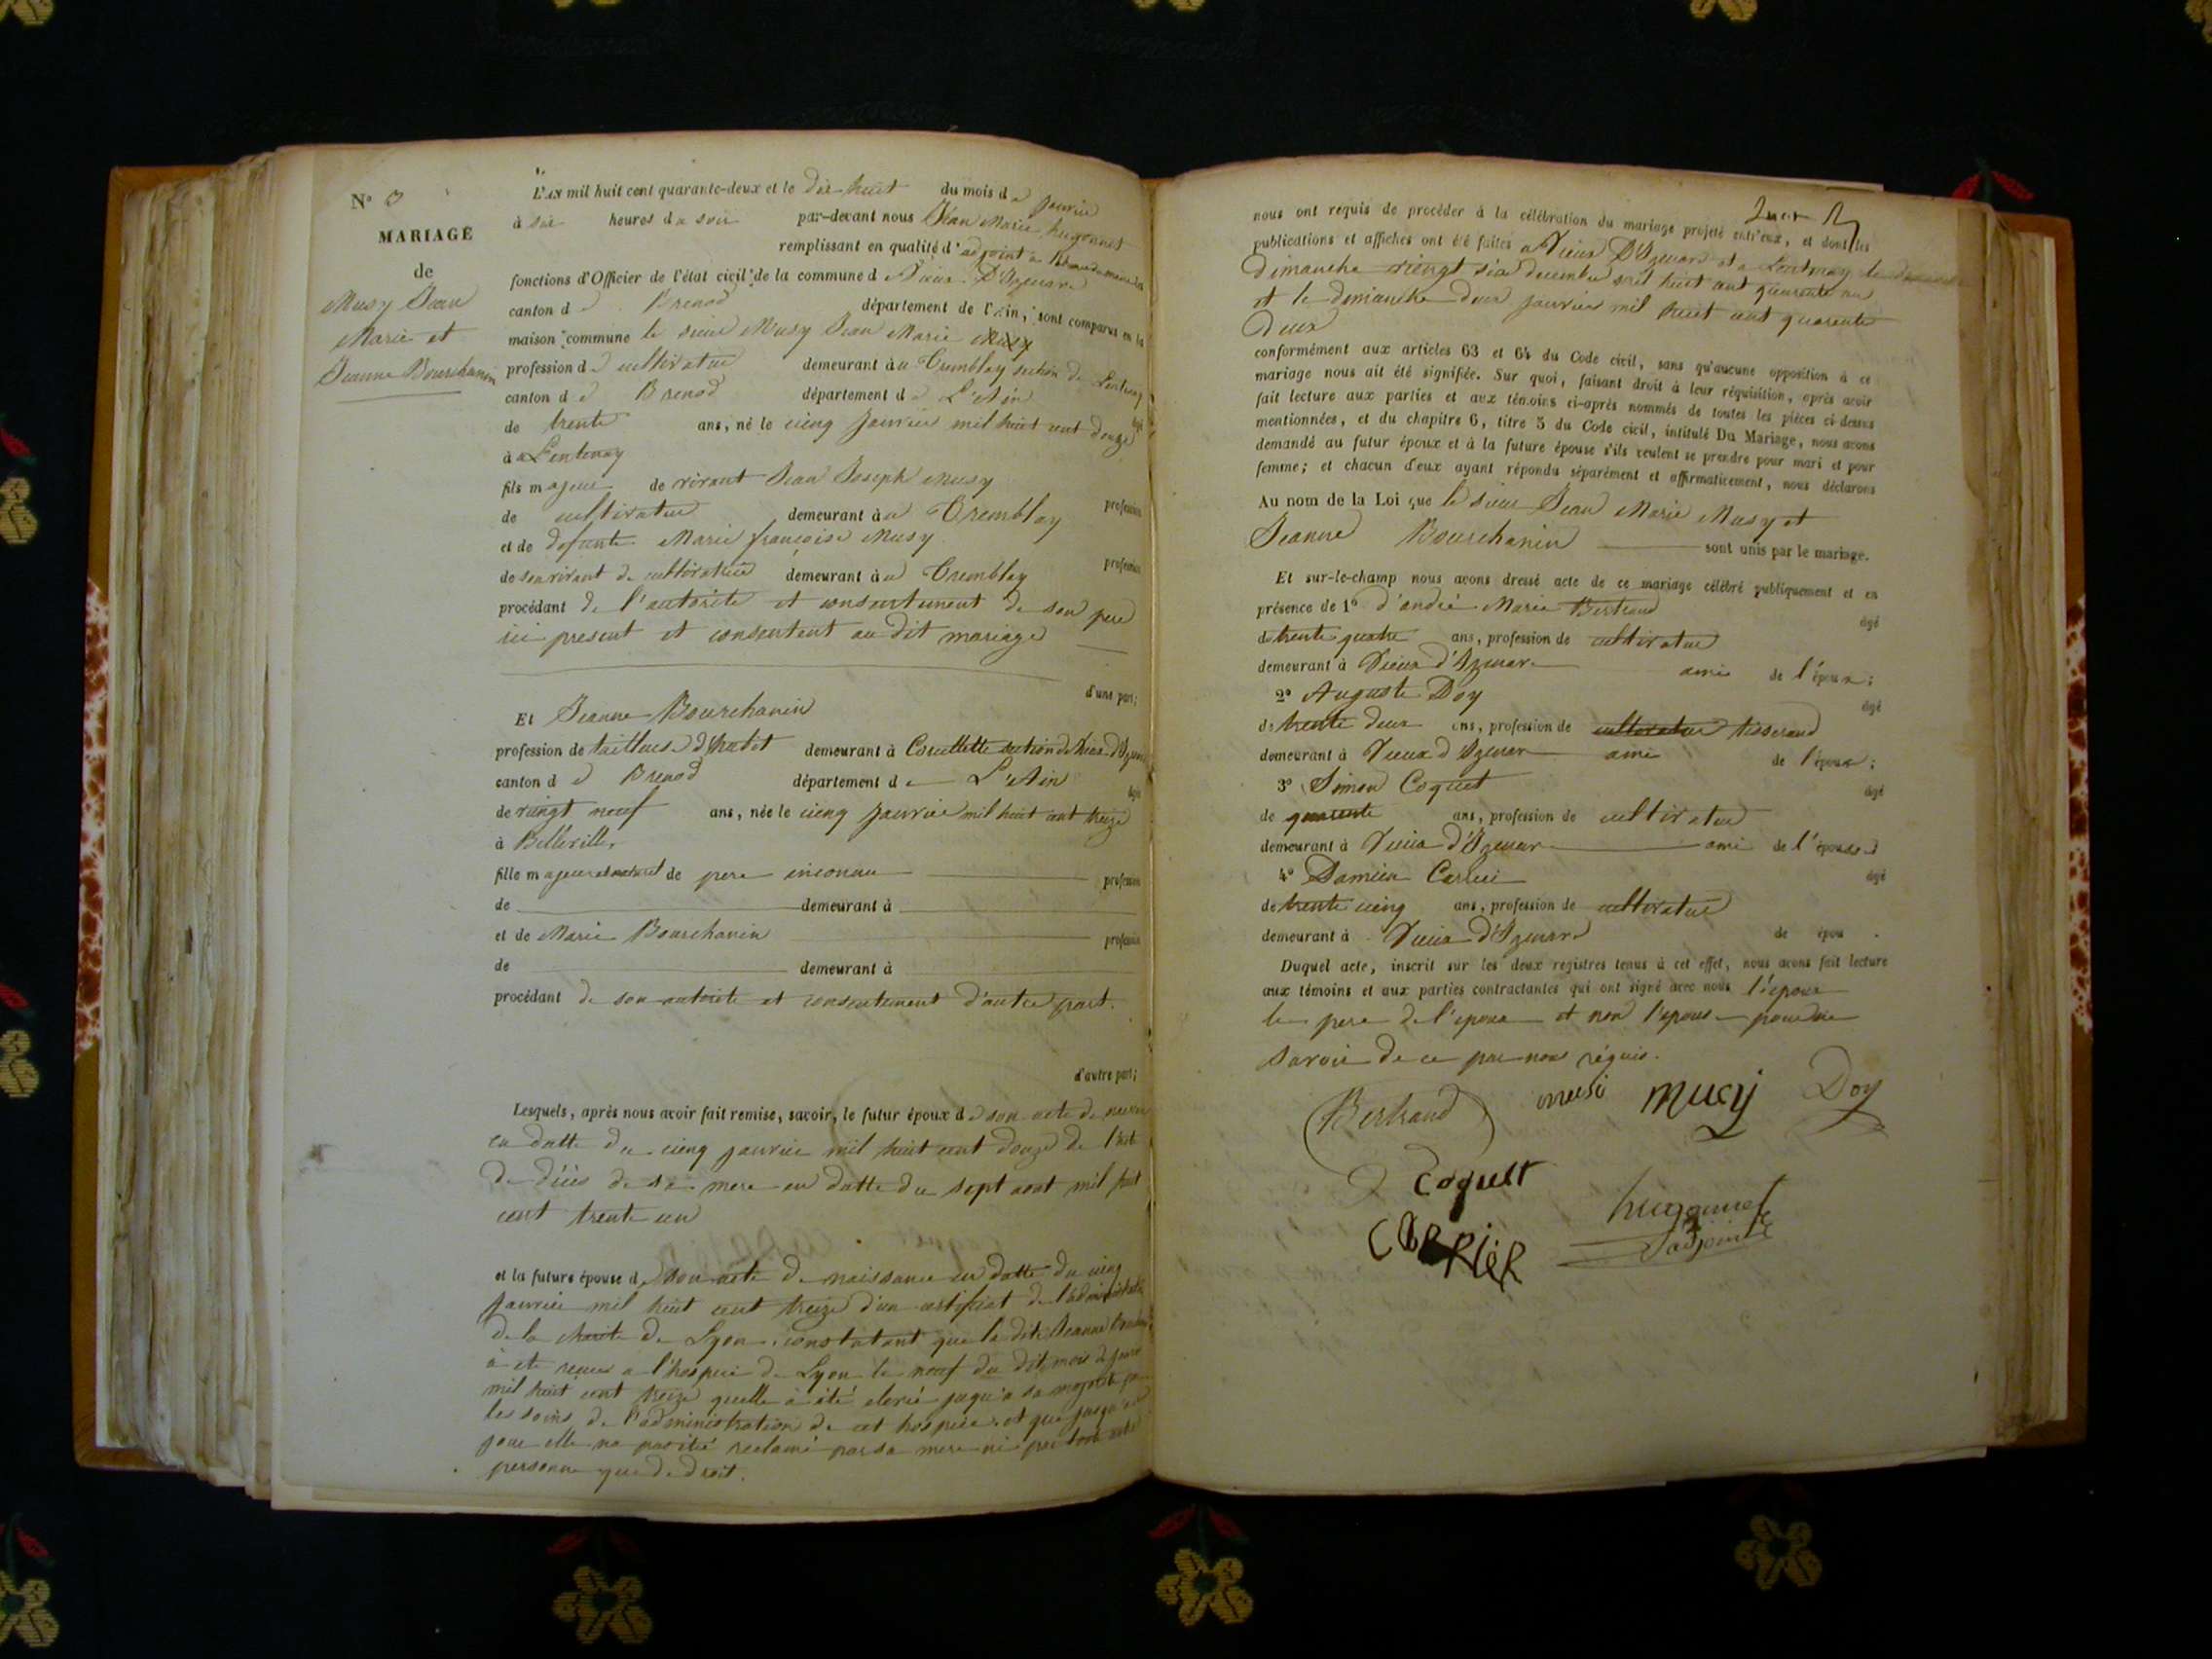 N° 3
MARIAGE
de
Musy Jean
Marie et
Jeanne Bourchanin
L'AN mil huit cent quarante-deux et le dix huit du mois de janvier
à six heures du soir par-devant nous Jean Marie hugonnet
remplissant en qualité d'adjoint
fonctions d'Officier de l'état civil de la commune de Vieux D'Izenave
canton de Brenod département de l'Ain, sont comparus en la
maison commune le sieur Musy Jean Marie Musy
profession de cultivateur demeurant à au Tremblay section de Lentenay
canton de Brenod département de L'Ain âgé
de trente ans, né le cinq janvier mil huit cent douze
à a Lentenay
fils majeur de vivant Jean Joseph Musy profession
de cultivateur demeurant à au Tremblay
et de defunte Marie françoise Musy profession
de son vivant de cultivatrice demeurant à au Tremblay
procédant de l'autorité et consentement de son pere
ici present et consentent au dit mariage
d'une part;
Et Jeanne Bourchanin
profession de tailleuse d'habit demeurant à Corcellette section de Vieux d'Izenave
canton de Brenod département de L'Ain âgée
de vingt neuf ans, née le cinq janvier mil huit cent treize
à Belleville
fille majeur et naturel de pere inconnu profession
de demeurant à
et de Marie Bourchanin profession
de demeurant à
procédant de son autorite et consentement d'autre part.
d'autre part;
Lesquels, après nous avoir fait remise, savoir, le futur époux de son acte de naissance
en datte du cinq janvier mil huit cent douze de l'acte
de décès de sa mere en datte du sept aout mil huit
cent trente un
et la future épouse de son acte de naissance en datte du cinq
janvier mil huit cent treize d'un certificat de l'administration
de la charite de Lyon, constatant que la dite Jeanne Bourchanin
à ete recue a l'hospice de Lyon le neuf du dit mois de janvier
mil huit cent treize quelle à été elevé jusqu'a sa majorité par
les soins de l'administration de cet hospice et que jusqu'a ce
jour elle na pas été reclamé par sa mere ni par tout autre
personne que de droit.
nous ont requis de procéder à la célébration du mariage projeté entr'eux, et dont les
publications et affiches ont été faites a Vieux D'Izenave et a Lentenay le dimanche
dimanche vingt six decembre mil huit cent quarante un
et le dimanche deux janvier mil huit cent quarante
deux
conformément aux articles 63 et 64 du Code civil, sans qu'aucune opposition à ce
mariage nous ait été signifiée. Sur quoi, faisant droit à leur réquisition, après avoir
fait lecture aux parties et aux témoins ci-après nommés de toutes les pièces ci-dessus
mentionnées, et du chapitre 6, titre 5 du Code civil, intitulé Du Mariage, nous avons
demandé au futur époux et à la future épouse s'ils veulent se prendre pour mari et pour
femme; et chacun d'eux ayant répondu séparément et affirmativement, nous déclarons
Au nom de la Loi que le sieur Jean Marie Musy et
Jeanne Bourchanin sont unis par le mariage.
Et sur-le-champ nous avons dressé acte de ce mariage célébré publiquement et en
présence de 1° d'andré Marie Bertrand âgé
de trente quatre ans, profession de cultivateur
demeurant à Vieux d'Izenave ami de l'époux;
2° Auguste Doy âgé
de trente deux ans, profession de cultivateur tisserand
demeurant à Vieux d'Izenave ami de l'époux;
3° Simon Coquet âgé
de quarente ans, profession de cultivateur
demeurant à Vieux d'Izenave ami de l'épouse
4° Damien Carrier âgé
de trente cinq ans, profession de cultivateur
demeurant à Vieux d'Izenave de épou
Duquel acte, inscrit sur les deux registres tenus à cet effet, nous avons fait lecture
aux témoins et aux parties contractantes qui ont signé avec nous l'époux
le pere de l'epoux et non l'epouse pour ne
savoir de ce par nous réquis.
Bertrand musi mucy Doy
Coquet
CARRIER
hugonnet
adjoint